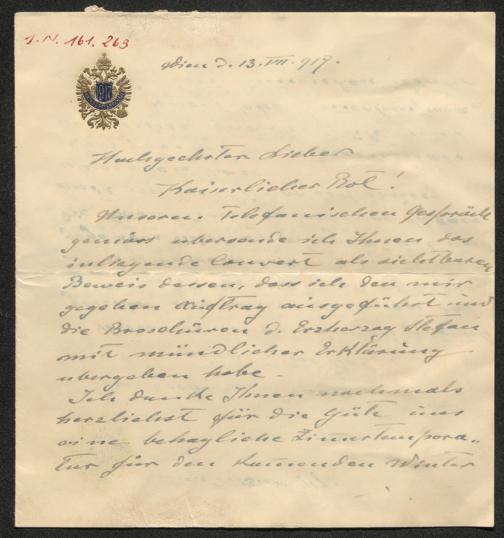 J.N. 161.263
Wien d. 13. VII. 917.
Hochgeehrter Lieber
Kaiserlicher Rot!
Unseren Telefonischen Gespräch
gemäss ubersende ich Ihnen das
inliegende Couvert als sichtbaren
Beweis dessen, dass ich den mir
gegeben Auftrag ausgeführt und
die Broschüren d. Erzherzog Stefan
mit mündlicher Erklärung
ubergeben habe.
Ich danke Ihnen nochmals
herzlichst für die Güte uns
eine behagliche Zimertempora-
tur für den komenden Winter